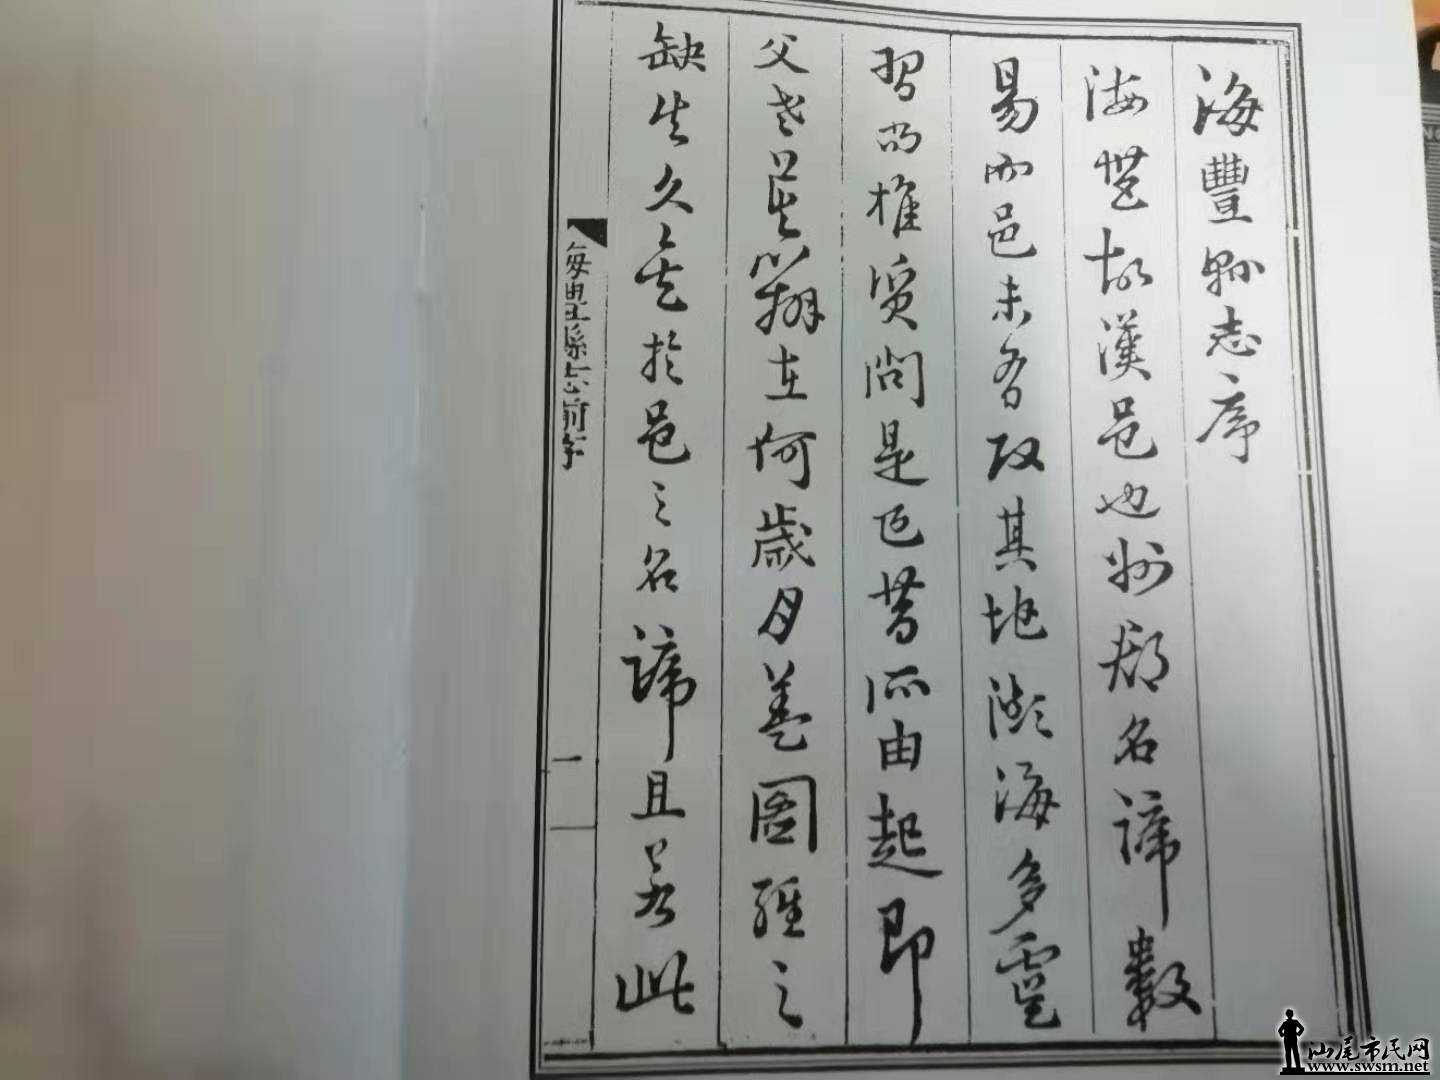 海豐縣志序
海豐故漢邑也州郡名諦數
易而邑未有改其地濒海多
習尚権實問是邑昔所由起即
父老莫在何歲月蓋圖經之
缺失久矣於邑之名諦且若此
海豐縣志前序
一
汕尾市民网
www.swsm.net